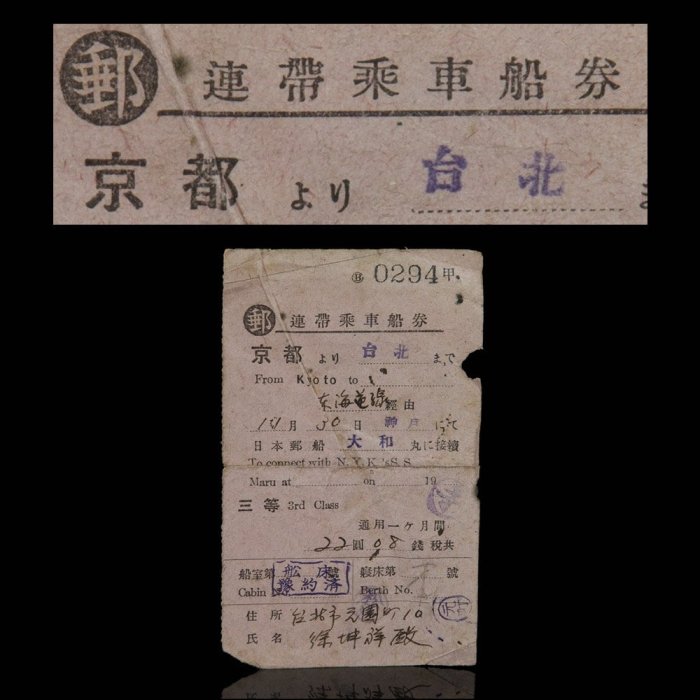 郵 連帶乘車船券
京都 より 台北 ま
Ⓑ 0294 甲
郵 連帶乘車船券
京都 より 台北 まで
From Kyoto to
東海道線 經由
月 30 日 神戸 にて
日本郵船 大和 丸に接續
To connect with N.Y.K.'s S.S.
Maru at on 19
三等 3rd Class
通用一ヶ月間
22 圓 08 錢 稅共
船室第 號 寢床第 號
船床
豫約済
Cabin Berth No.
住所 台北市元園町10
氏名 徐坤祥殿